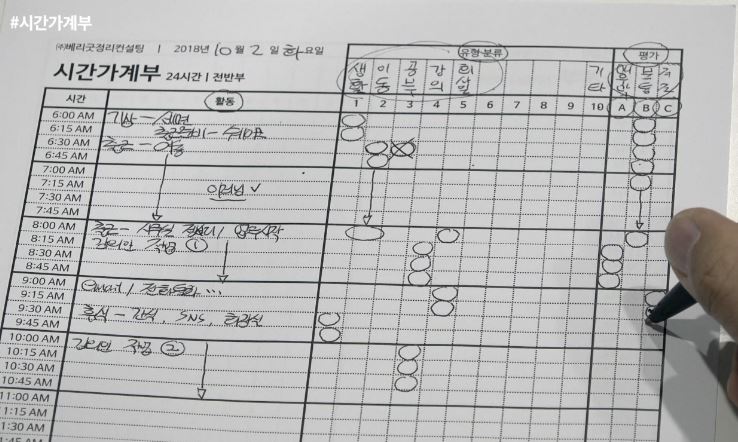 #시간가계부
㈜베리굿정리컨설팅 | 2018년 10월 2일 화요일
시간가계부 24시간 | 전반부
유형·분류
평가
생활 이동 공부 강의 기타
보통
시간 활동 1 2 3 4 5 6 7 8 9 10 A B C
6:00 AM 기상 - 세면
6:15 AM 출근준비 -
6:30 AM 출근 - 이동
6:45 AM
7:00 AM
7:15 AM
7:30 AM
7:45 AM
8:00 AM 출근 - 사무실 / 업무시작
8:15 AM 강의안 작업 ①
8:30 AM
8:45 AM
9:00 AM email / 전화통화 ...
9:15 AM
9:30 AM 휴식 - 간식, SNS,
9:45 AM
10:00 AM 강의안 작업 ②
10:15 AM
10:30 AM
10:45 AM
11:00 AM
11:15 AM
11:30 AM
11:45 AM